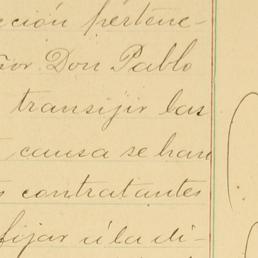 cción pertene-
ñor Don Pablo
transijir las
causa se han
contratantes
fijar á la di-